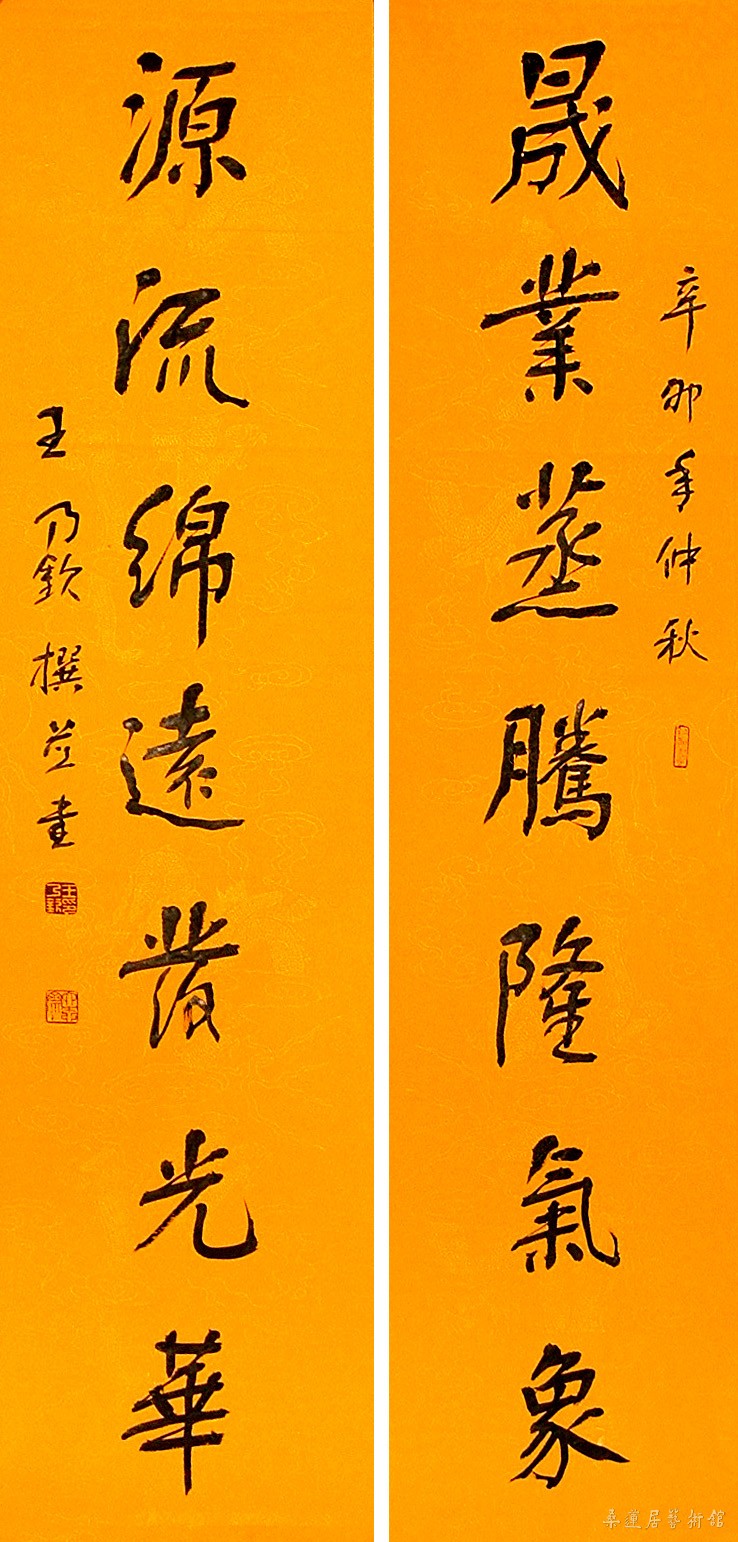 辛卯年仲秋
晟業蒸騰隆氣象
源流綿遠發光華
王乃欽撰並書
桑蓮居藝術館